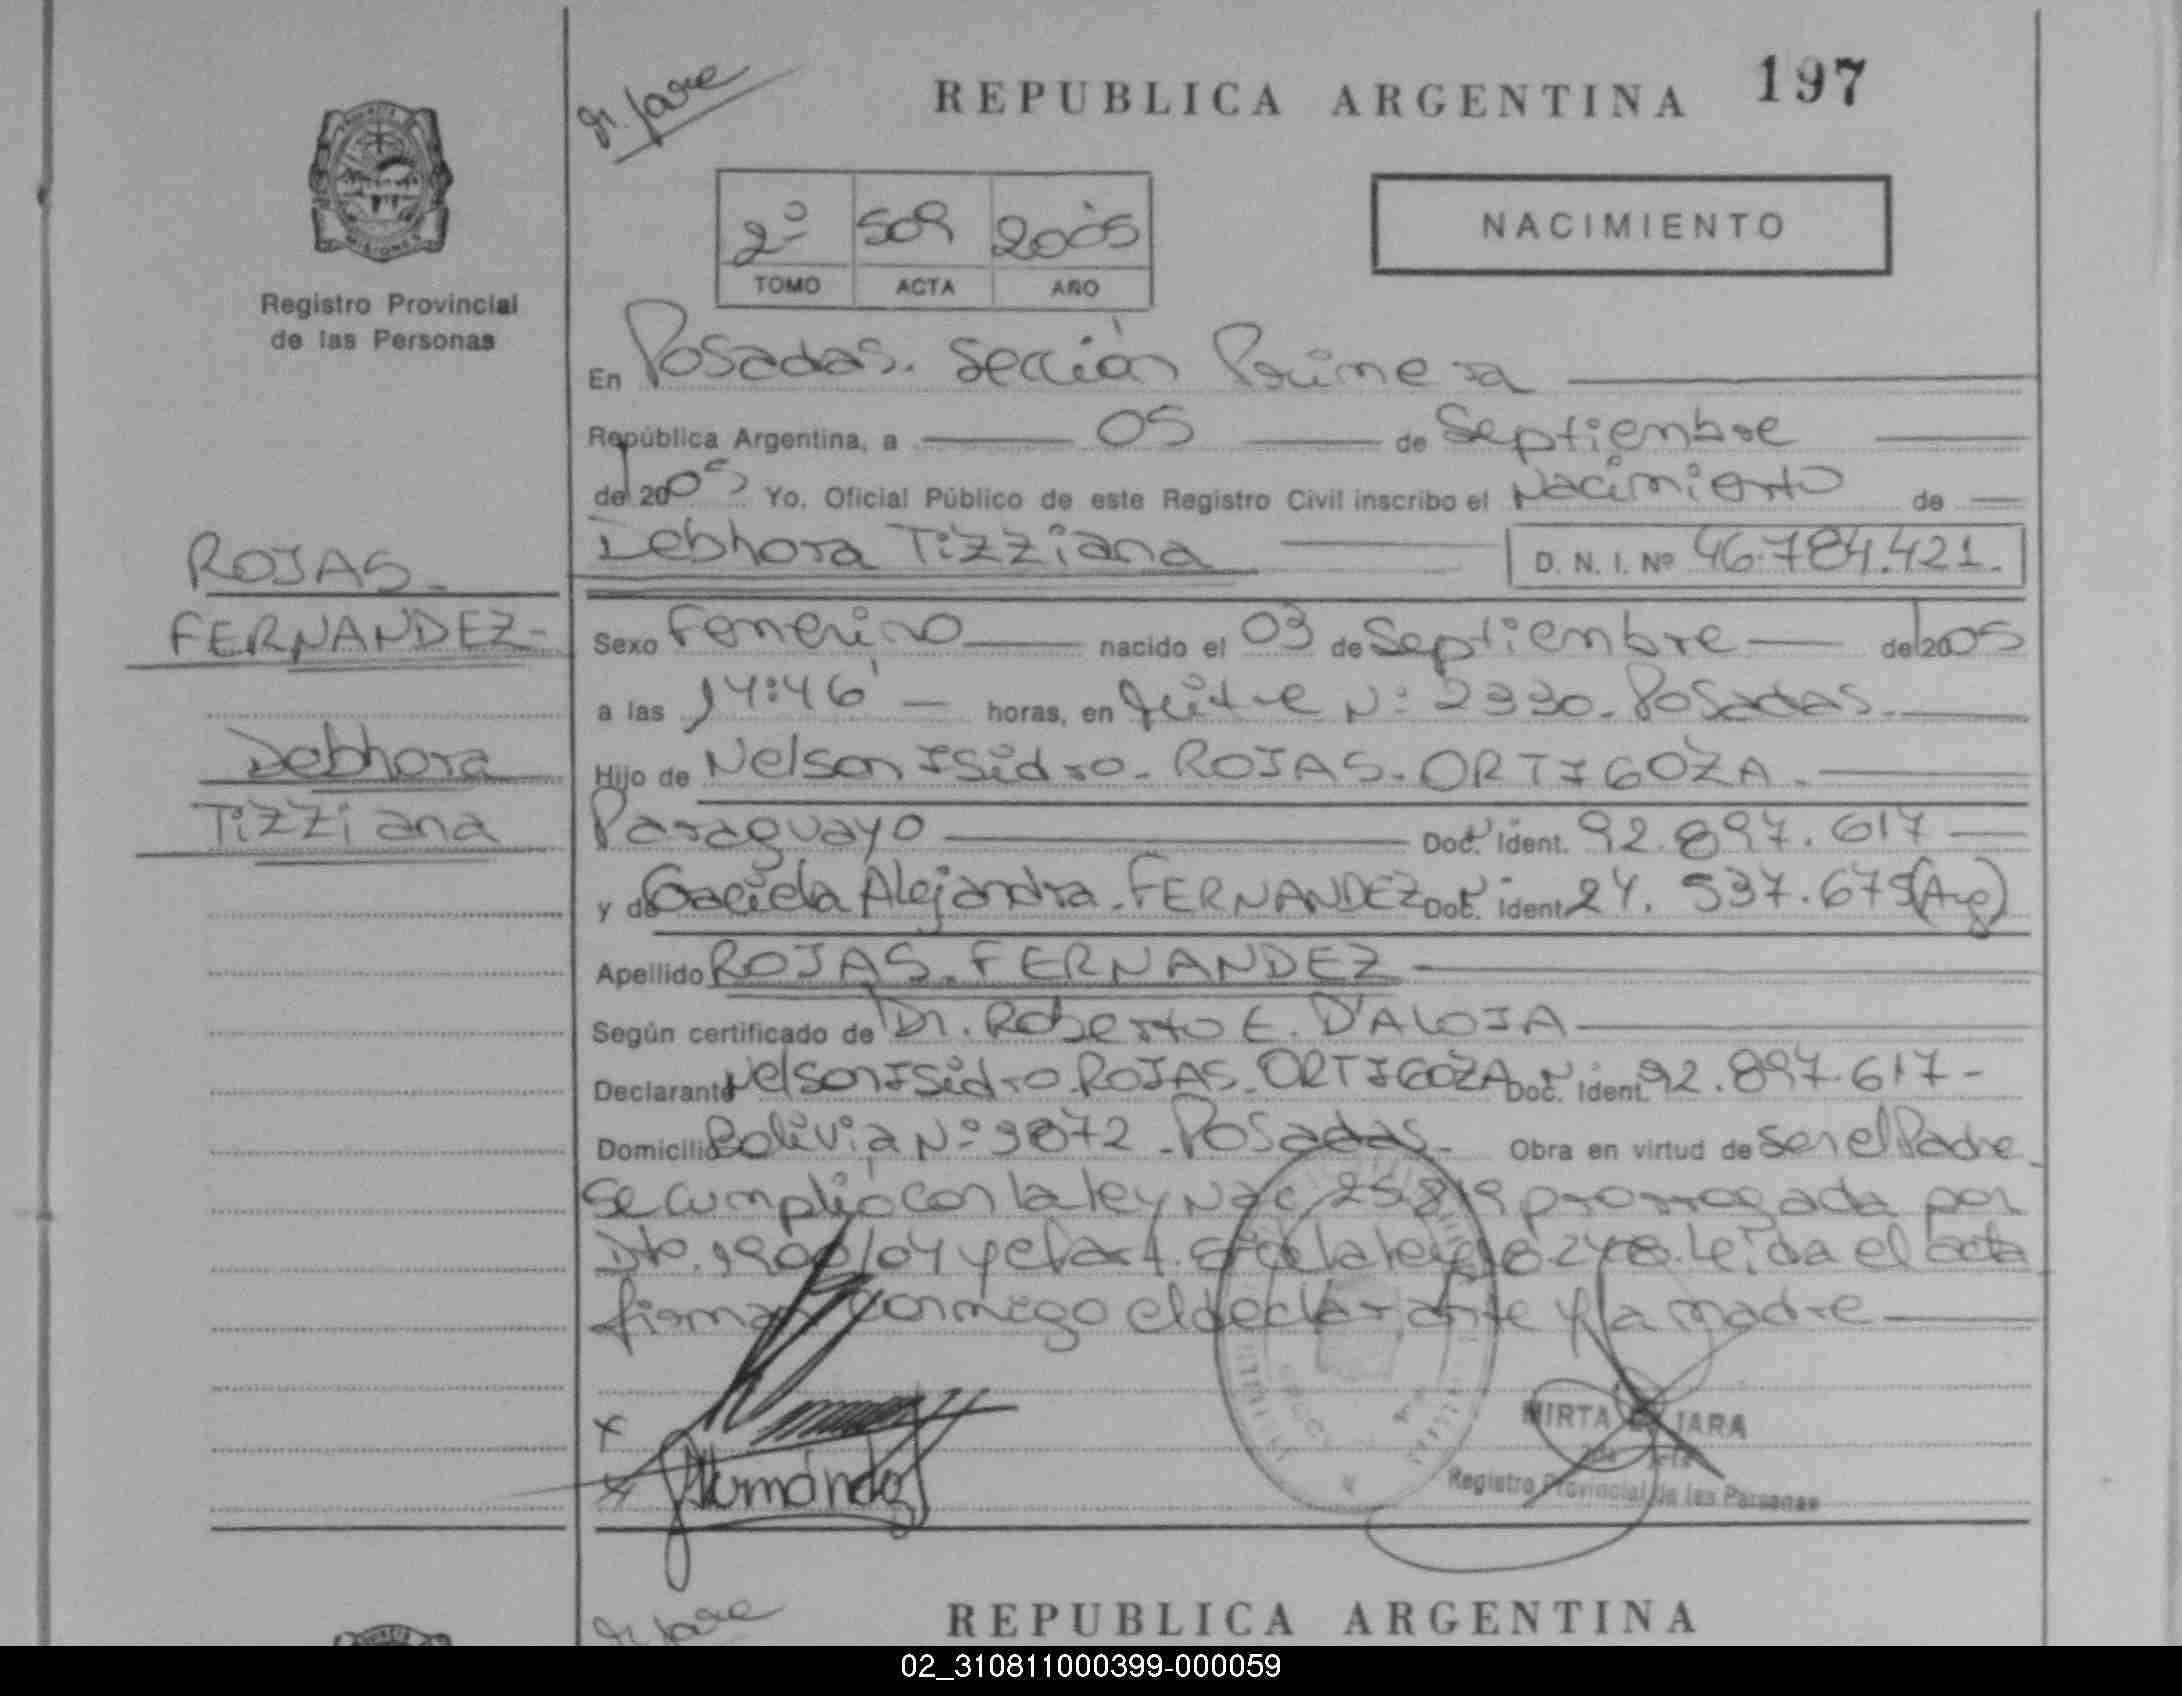 REPUBLICA ARGENTINA 197
2º 509 2005
TOMO ACTA AÑO
NACIMIENTO
Registro Provincial
de las Personas
En Posadas. Sección Primera
República Argentina, a 05 de Septiembre
del 2005 Yo, Oficial Público de este Registro Civil inscribo el Nacimiento de
Debhora Tizziana D. N. I. Nº 46.784.421.
ROJAS
FERNANDEZ
Debhora
Tizziana
Sexo Femenino nacido el 03 de Septiembre del 2005
a las 14:46' horas, en Nº 2330. Posadas
Hijo de Nelson Isidro. ROJAS. ORTIGOZA.
Paraguayo Doc. Ident. 92.897.617
y de Graciela Alejandra. FERNANDEZ Doc. Ident. 24.537.675 (Arg)
Apellido ROJAS. FERNANDEZ
Según certificado de Dr. Roberto E. D'ALOIA
Declarante Nelson Isidro. ROJAS. ORTIGOZA Doc. Ident. 92.897.617-
Domicilio Bolivia Nº 3872. Posadas. Obra en virtud de ser el Padre
Se cumplió con la ley Nac 25.819 prorrogada por
Dto. 1900/04 y el art. de la ley 18.248. Leída el acta
firman conmigo el declarante y la madre
Fernández
MIRTA JARA
Registro Provincial de las Personas
REPUBLICA ARGENTINA
02_310811000399-000059